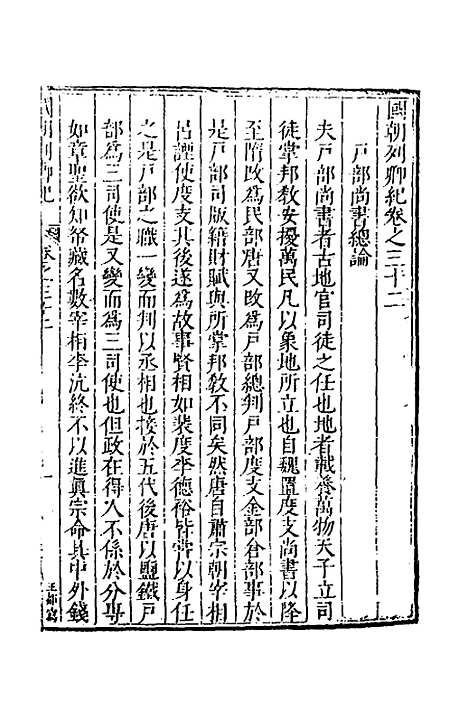 國朝列卿紀卷之三十二
戸部尚書總論
夫戸部尚書者古地官司徒之任也地者載養萬物天子立司
徒掌邦敎安擾萬民凡以象地所立也自魏置度支尚書以降
至隋改爲民部唐又改爲戸部總判戸部度支金部倉部事於
是戸部司版籍財賦與所掌邦敎不同矣然唐自肅宗朝宰相
呂諲使度支其後遂爲故事賢相如裴度李德裕皆嘗以身任
之是戸部之職一變而判以丞相也接於五代後唐以鹽鐵戸
部爲三司使是又變而爲三司使也但政在得人不係於分專
如章聖欲知帑藏名數宰相李沆終不以進眞宗命具中外錢
國朝列卿紀
卷之三十二
一
王郁寫